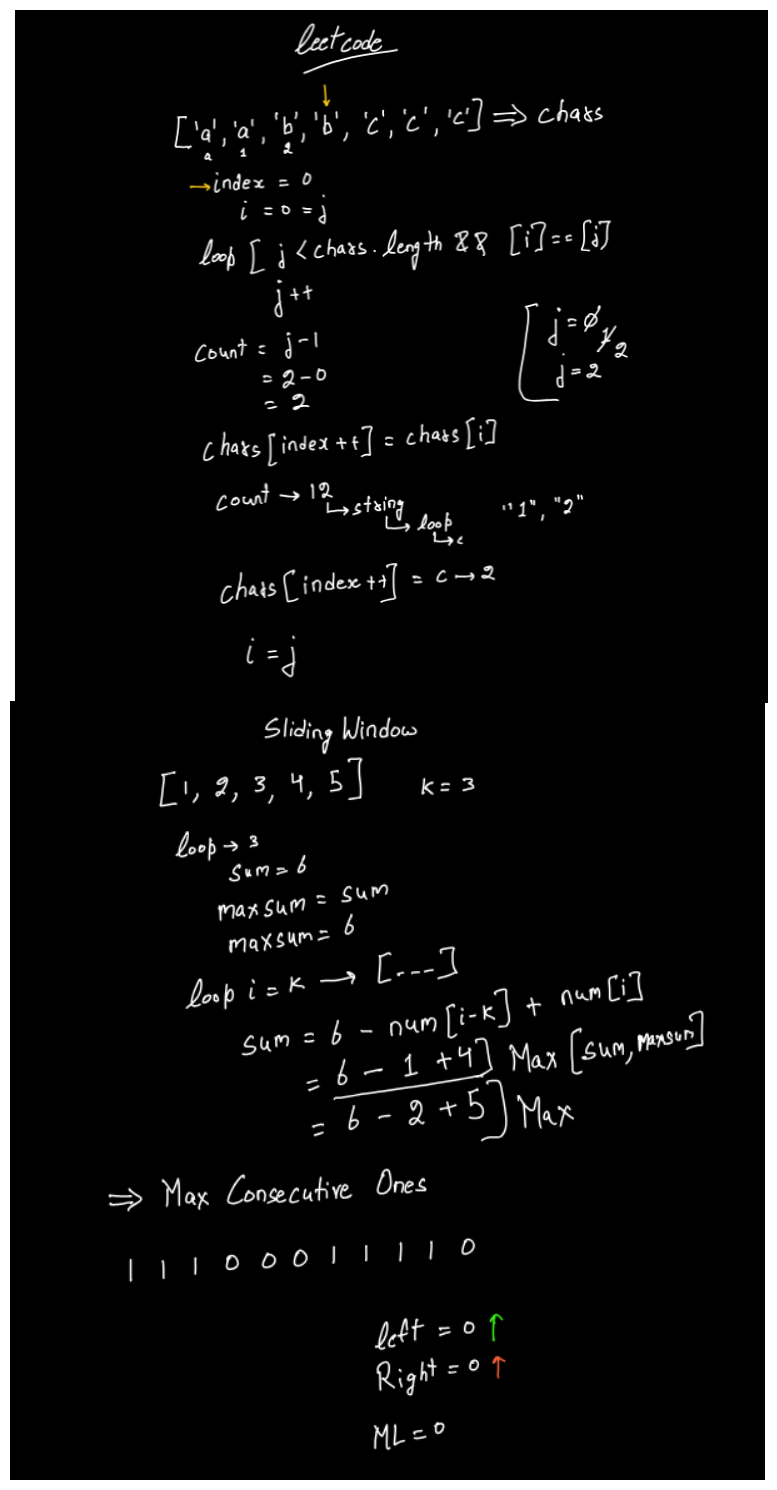 leetcode
['a', 'a', 'b', 'b', 'c', 'c', 'c'] ⇒ chars
a 1 2
→ index = 0
i = 0 = j
loop [ j < chars.length && [i] == [j]
j++
count = j-1
= 2-0
= 2
j = 0 1 2
j = 2
chars[index++] = chars[i]
count → 12
↳ string
↳ loop
↳ c
"1", "2"
chars[index++] = c → 2
i = j
Sliding Window
[1, 2, 3, 4, 5] k = 3
loop → 3
sum = 6
maxsum = sum
maxsum = 6
loop i = k → [----]
sum = 6 - num[i-k] + num[i]
= 6 - 1 + 4] Max [sum, maxsum]
= 6 - 2 + 5] Max
⇒ Max Consecutive Ones
1 1 1 0 0 0 1 1 1 1 0
left = 0 ↑
Right = 0 ↑
ML = 0